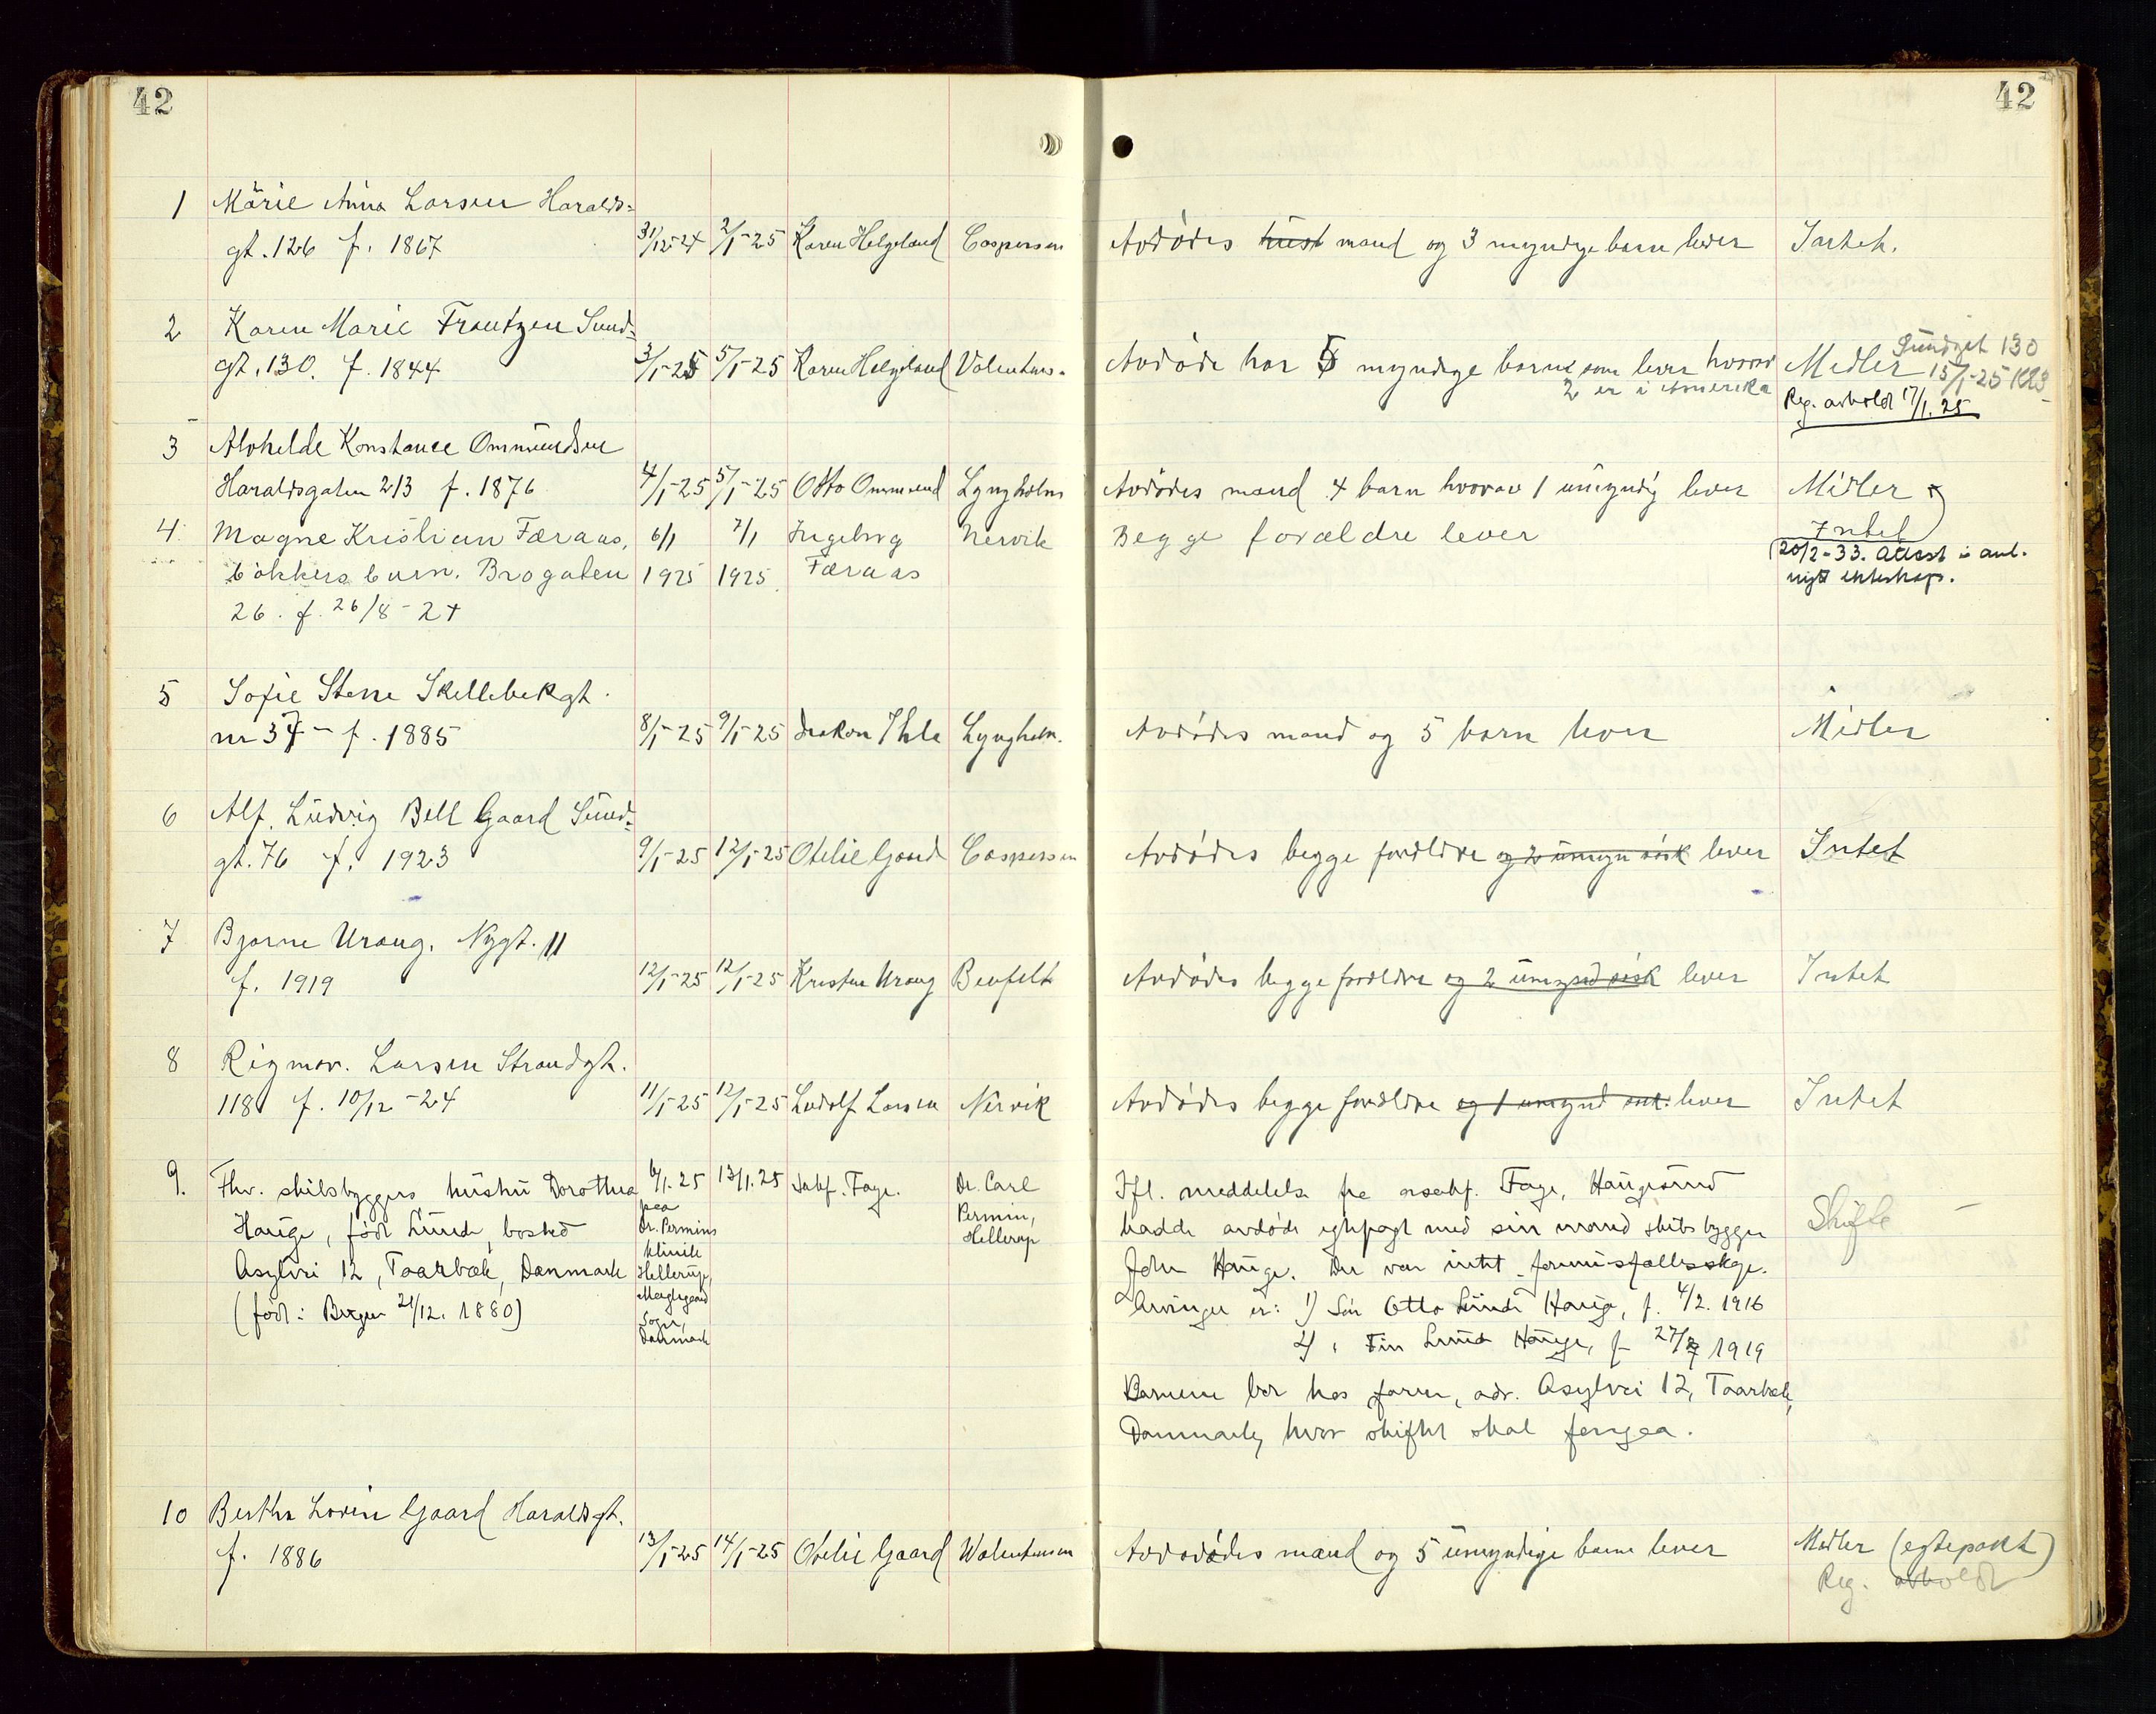 42
42
1 Marie Anna Larsen Haralds-
gt. 126 f. 1867 31/12-24 2/1-25 Karen Helgeland Caspersen Avdødes mand og 3 myndige barn lever Intet.
2 Karen Marie Frantzen Sund-
gt. 130. f. 1844 3/1-25 5/1-25 Karen Helgeland Valentins. Avdøde har 5 myndige barn som lever hvorav Midler Sundgt 130
2 er i Amerika 15/1-25
Reg. avholdt 17/1. 25
3 Alvhilde Konstance Ommundsen
Haraldsgaten 213 f. 1876 4/1-25 5/1-25 Otto Ommund Lyngholm Avdødes mand 4 barn hvorav 1 umyndig lever Midler
4. Magne Kristian Færaas, 6/1 7/1 Ingeborg Nervik Begge forældre lever Intet
bøkkers barn. Brogaten 1925 1925 Færaas
20/2-33. Attest i anl.
nyt ekteskap.
26. f. 26/8-24
5 Sofie Stene Skillebekgt.
nr 37 - f. 1885 8/1-25 9/1-25 Haakon Ihle Lyngholm. Avdødes mand og 5 barn lever Midler
6 Alf. Ludvig Bell Gaard Sund-
gt. 76 f. 1923 9/1-25 12/1-25 Otelie Gaard Caspersen Avdødes begge foreldre og 2 umyn søsk lever Intet
7 Bjarne Urang. Nygt. 11
f. 1919 12/1-25 12/1-25 Kristine Urang Benfelt Avdødes begge foreldre og 2 umynd søsk lever Intet
8 Rigmor. Larsen Strandgt.
118 f. 10/12-24 11/1-25 12/1-25 Ludolf Larsen Nervik Avdødes begge foreldre og 1 umynd søk. lever Intet
9. Fhv. skibsbyggers hustru Dorothea 6/1. 25 13/1. 25 sakf. Fage. Dr. Carl
Permin,
Hellerup
Hauge, født Lund, bosted
Asylvei 12, Taarbæk, Danmark
(født: Bergen 21/12. 1880)
paa
Dr. Permins
klinik
Hellerup,
Maglegaard
Sogn,
Danmark
Ifl. meddelelse fra orsakf. Fage, Haugesund
hadde avdøde egtepagt med sin mand skibsbygger
John Hauge. Der var intet formuesfællesskap.
Arvinger er: 1) Søn Otto Lund Hauge, f. 4/2. 1916
2) " Fin Lund Hauge, f. 27/7 1919
Barnene bor hos faren, adr. Asylvei 12, Taarbæk,
Danmark, hvor skiftet skal foregaa.
Skifte
10 Bertha Lovin Gaard Haraldsgt.
f. 1886 13/1-25 14/1-25 Otelie Gaard Walentinsen Avdødes mand og 5 umyndige barn lever Midler (egtepakt)
Reg. avholdt